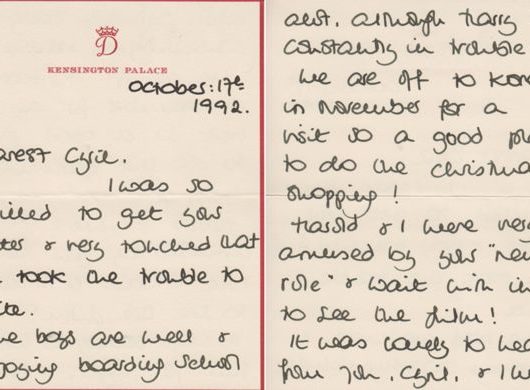 D
KENSINGTON PALACE
October: 17th
1992.
arest Cyril.
I was so
illed to get your
ter & very touched that
took the trouble to
te.
e boys are well &
joying boarding school
alot. although Harry
constantly in trouble
We are off to Kore
in November for a
visit so a good pla
to do the Christma
shopping!
Harold & I were very
amused by your "new
role" & wait with in
to see the film!
It was lovely to hea
from you. Cyril. & I h